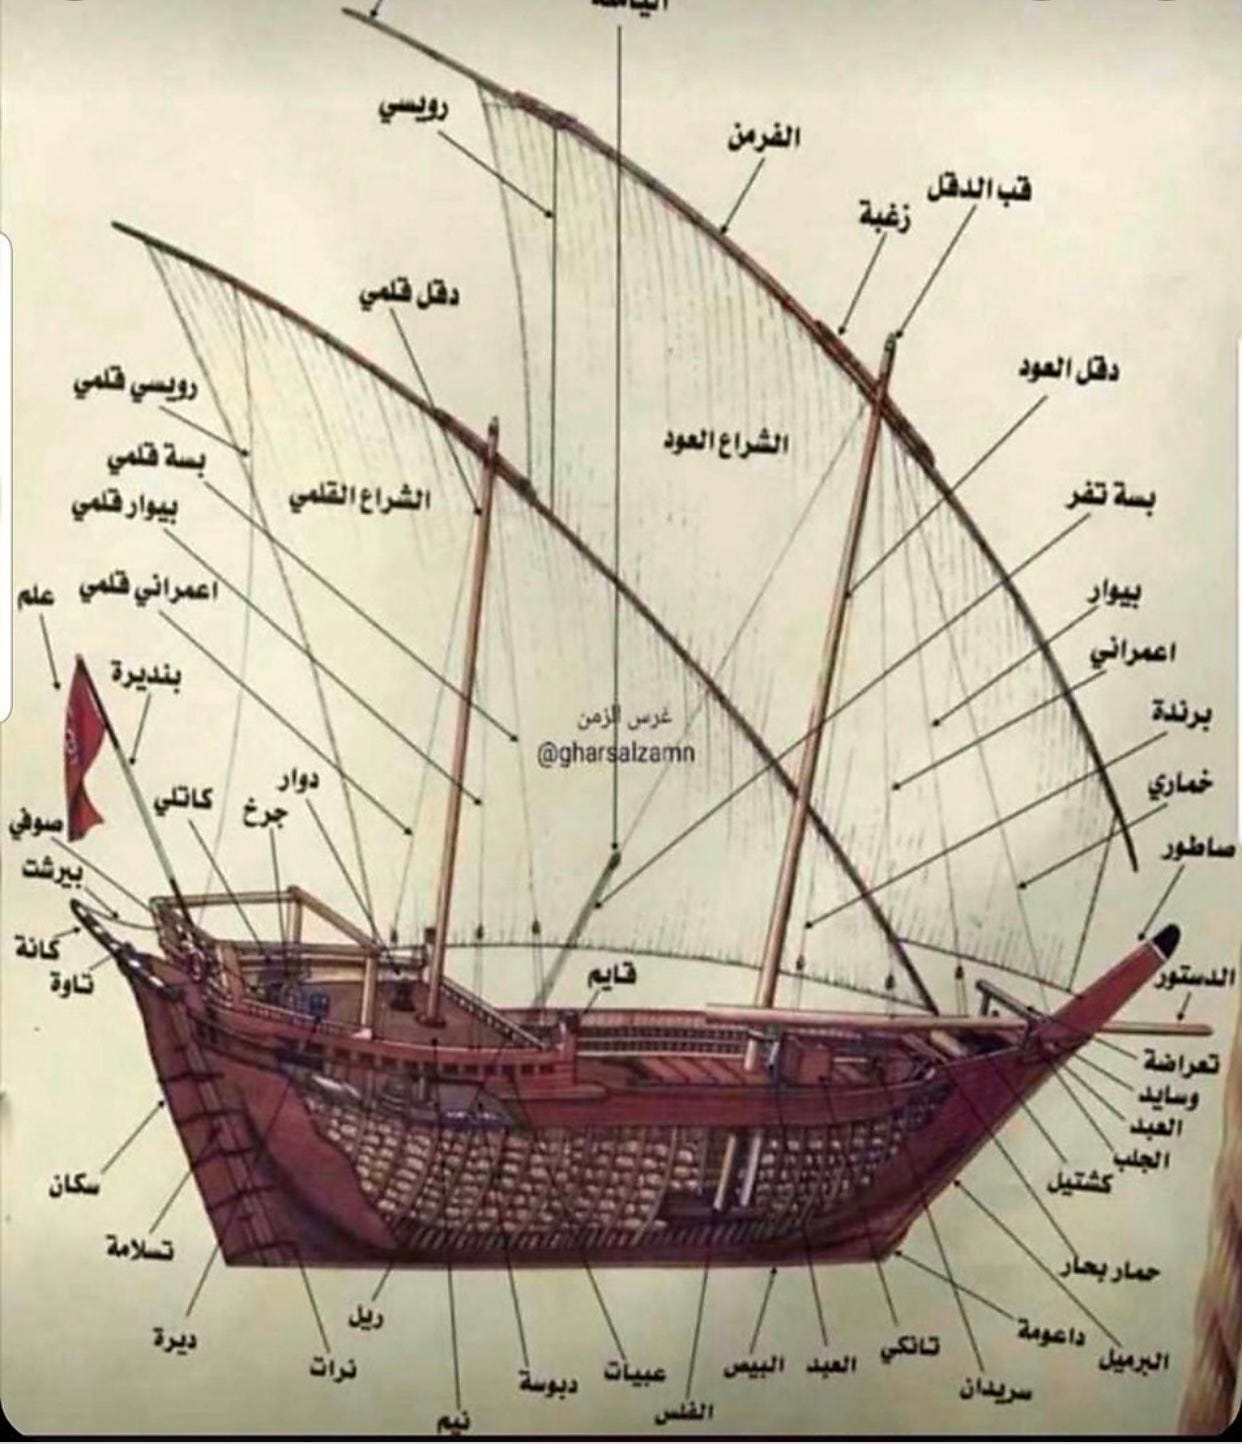 رويسي
الفرمن
قب الدقل
زغبة
دقل قلمي
دقل العود
رويسي قلمي
الشراع العود
بسة قلمي
الشراع القلمي
بسة تفر
بيوار قلمي
اعمراني قلمي
بيوار
علم
اعمراني
بنديرة
غرس الزمن
@gharsalzamn
برندة
دوار
كاتلي
جرخ
خماري
صوفي
صاطور
بيرشت
كانة
قايم
الدستور
تاوة
تعراضة
وسايد
العبد
الجلب
سكان
كشتيل
تسلامة
حمار بحار
ريل
ديرة
داعومة
نرات
عبيات
البيص
العبد
تانكي
البرميل
دبوسة
سريدان
الفلس
نيم